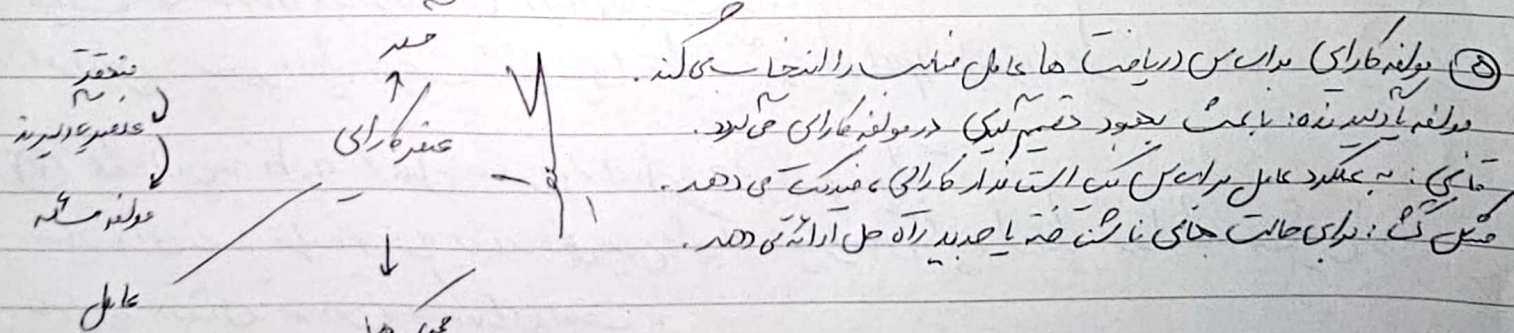 ۵ مولفه کارایی براساس دریافت ها عامل مناسب را انتخاب می کند.
مولفه یادگیرنده: باعث بهبود تصمیم گیری در مولفه کارایی می گردد.
به عملکرد عامل براساس یک استاندارد کارایی، فیدبک می دهد.
برای حالت های ناشناخته یا جدید راه حل ارائه می دهد.
عنصر کارایی
منتقد
عنصر یادگیرنده
مولفه مسئله
عامل